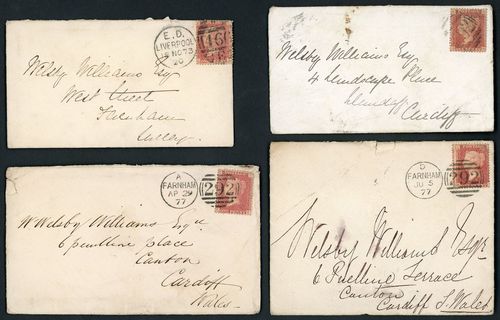 E.D.
LIVERPOOL
NO 73
466
Welsby Williams Esq
West Street
Farnham
Surrey.
Welsby Williams Esq
4 Place
Cardiff
A
FARNHAM
AP 29
77
292
W Welsby Williams Esqre
6 penlline place
Canton
Cardiff
Wales
D
FARNHAM
JU 5
77
292
Welsby Williams Esqr
6 Penlline Terrace
Canton
Cardiff S. Wales